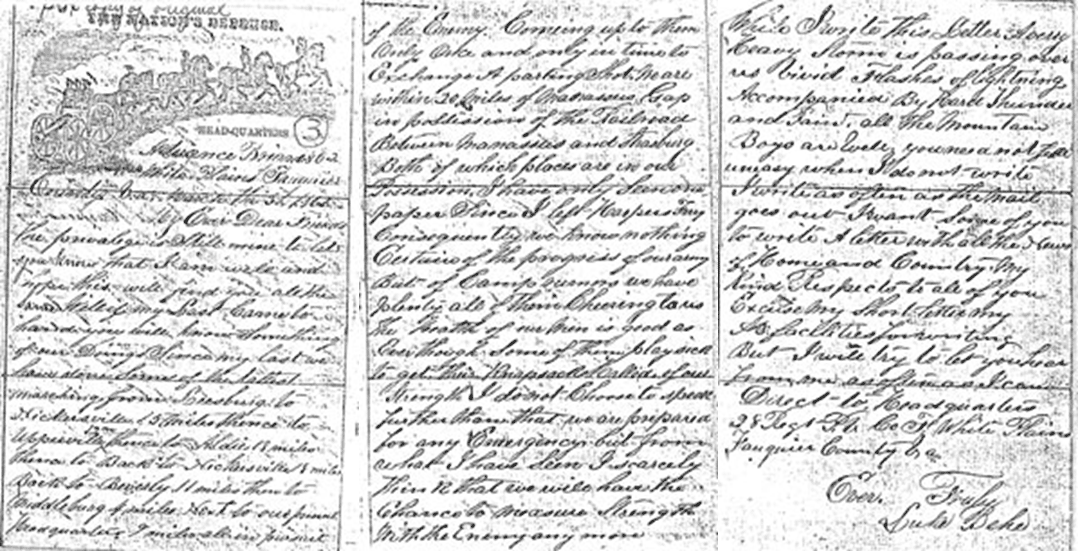 copy of original
THE NATION'S DEFENSE.
HEAD-QUARTERS 3
Advance
White Plains
County March the 31st 1862
My Ever Dear Friends
the privalege is Still mine to let
you know that I am well and
hope this will find you all the
of my Last Came to
hand you will know Something
of our Doings Since my last we
have done Some of the
marching from Leesburg to
Snickersville 15 miles thence to
Upperville thence to Aldie 13 miles
thence to Back to Snickersville 8 miles
Back to 11 miles then to
Middleburg 8 miles Next to our present
Headquarters 7 miles in pursuit
of the Enemy. Coming up to them
Only Once and only in time to
Exchange A parting Shot. We are
within 20 miles of Manassus Gap
in possession of the Railroad
Between Manassus and Strasburg
Both of which places are in our
Possession, I have only Seen one
paper Since I left Harpers Fery
Consequently we know nothing
Certain of the progress of our army
But of Camp rumors we have
plenty all of them Cheering to us
the health of our men is good as
Ever though Some of them play sick
to get their Knapsacks Halled of our
Strength I do not Choose to speak
further than that we are prepared
for any Emergency but from
what I have Seen I scarcely
think that we will have the
Chance to measure Strength
With the Enemy any more
While I write this Letter A very
heavy Storm is passing over
us Vivid Flashes of lightning
Accompanied By Hard Thunder
and Rain. all the Mountain
Boys are well, you need not feel
uneasy when I do not write
I write as often as the mail
goes out I want Some of you
to write A letter with all the News
of Home and Country. My
Kind Respects to all of you
Excuse my Short letter my
facilities for writing
But I will try to let you hear
from me as often as I can
Direct to Headquarters
28 Regt Pa Co White Plains
Fauquier County Va
Ever. Truly
Luke